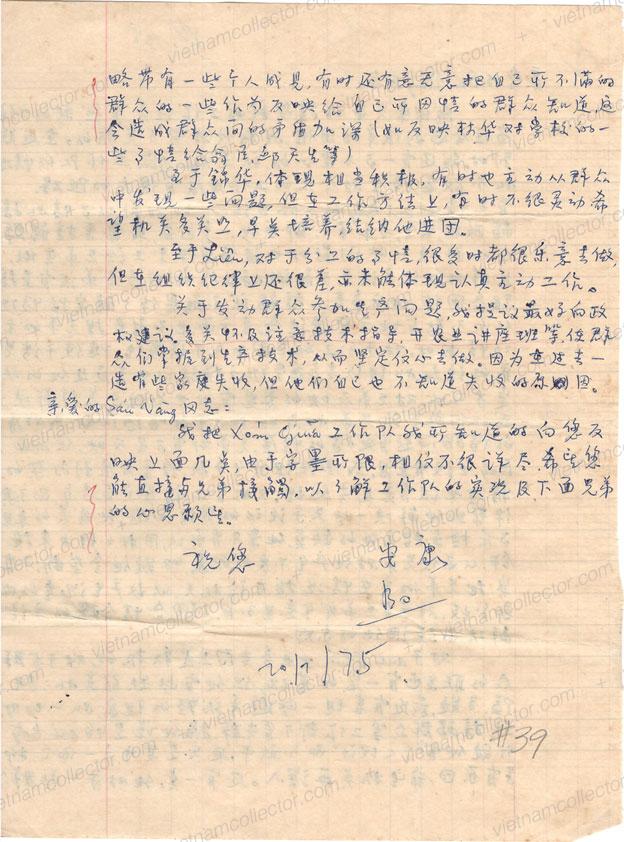 略带有一些个人成见,有时还有意无意把自己所不满的
群众的一些作为反映给自己所同情的群众知道,这
会造成群众间的矛盾加深(如反映林华对学校的一
些事情给俞居,邹天生等)
至于锦华,体现相当积极,有时也主动从群众
中发现一些问题,但在工作方法上,有时不很灵动希
望机关多关照,早点培养,结纳他进团。
至于Liên,对于分工的事情,很多时都很乐意去做,
但在组织纪律上还很差,亦未能体现认真主动工作。
关于发动群众参加生产问题,我提议最好向政
权建议多关怀及注意技术指导,开农业讲座班等,使群
众们掌握到生产技术,从而坚定信心去做。因为在过去一
造有些家庭失收,但他们自己也不知道失收的原因。
亲爱的Sáu Vàng同志:
我把Xóm Giữa工作队我所知道的向您反
映上面几点,由于字墨所限,相信不很详尽希望您
能直接与兄弟接触,以了解工作队的实况及下面兄弟
的心思愿望。
祝您 安康
20/7/75
#39
vietnamcollector.com